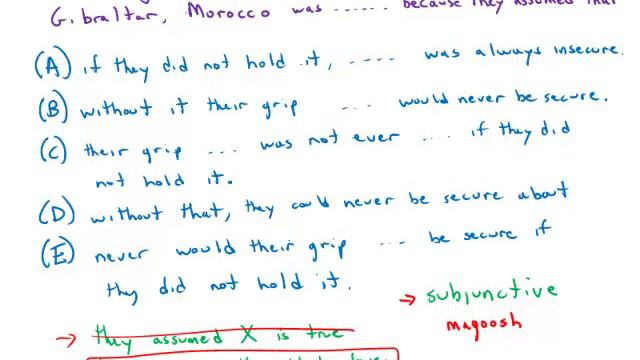 Gibraltar, Morocco was ...... because they assumed that
(A) if they did not hold it, .... was always insecure.
(B) without it their grip ... would never be secure.
(C) their grip ... was not ever .... if they did
not hold it.
(D) without that, they could never be secure about
(E) never would their grip ... be secure if
they did not hold it.
→ subjunctive
magoosh
→ they assumed X is true